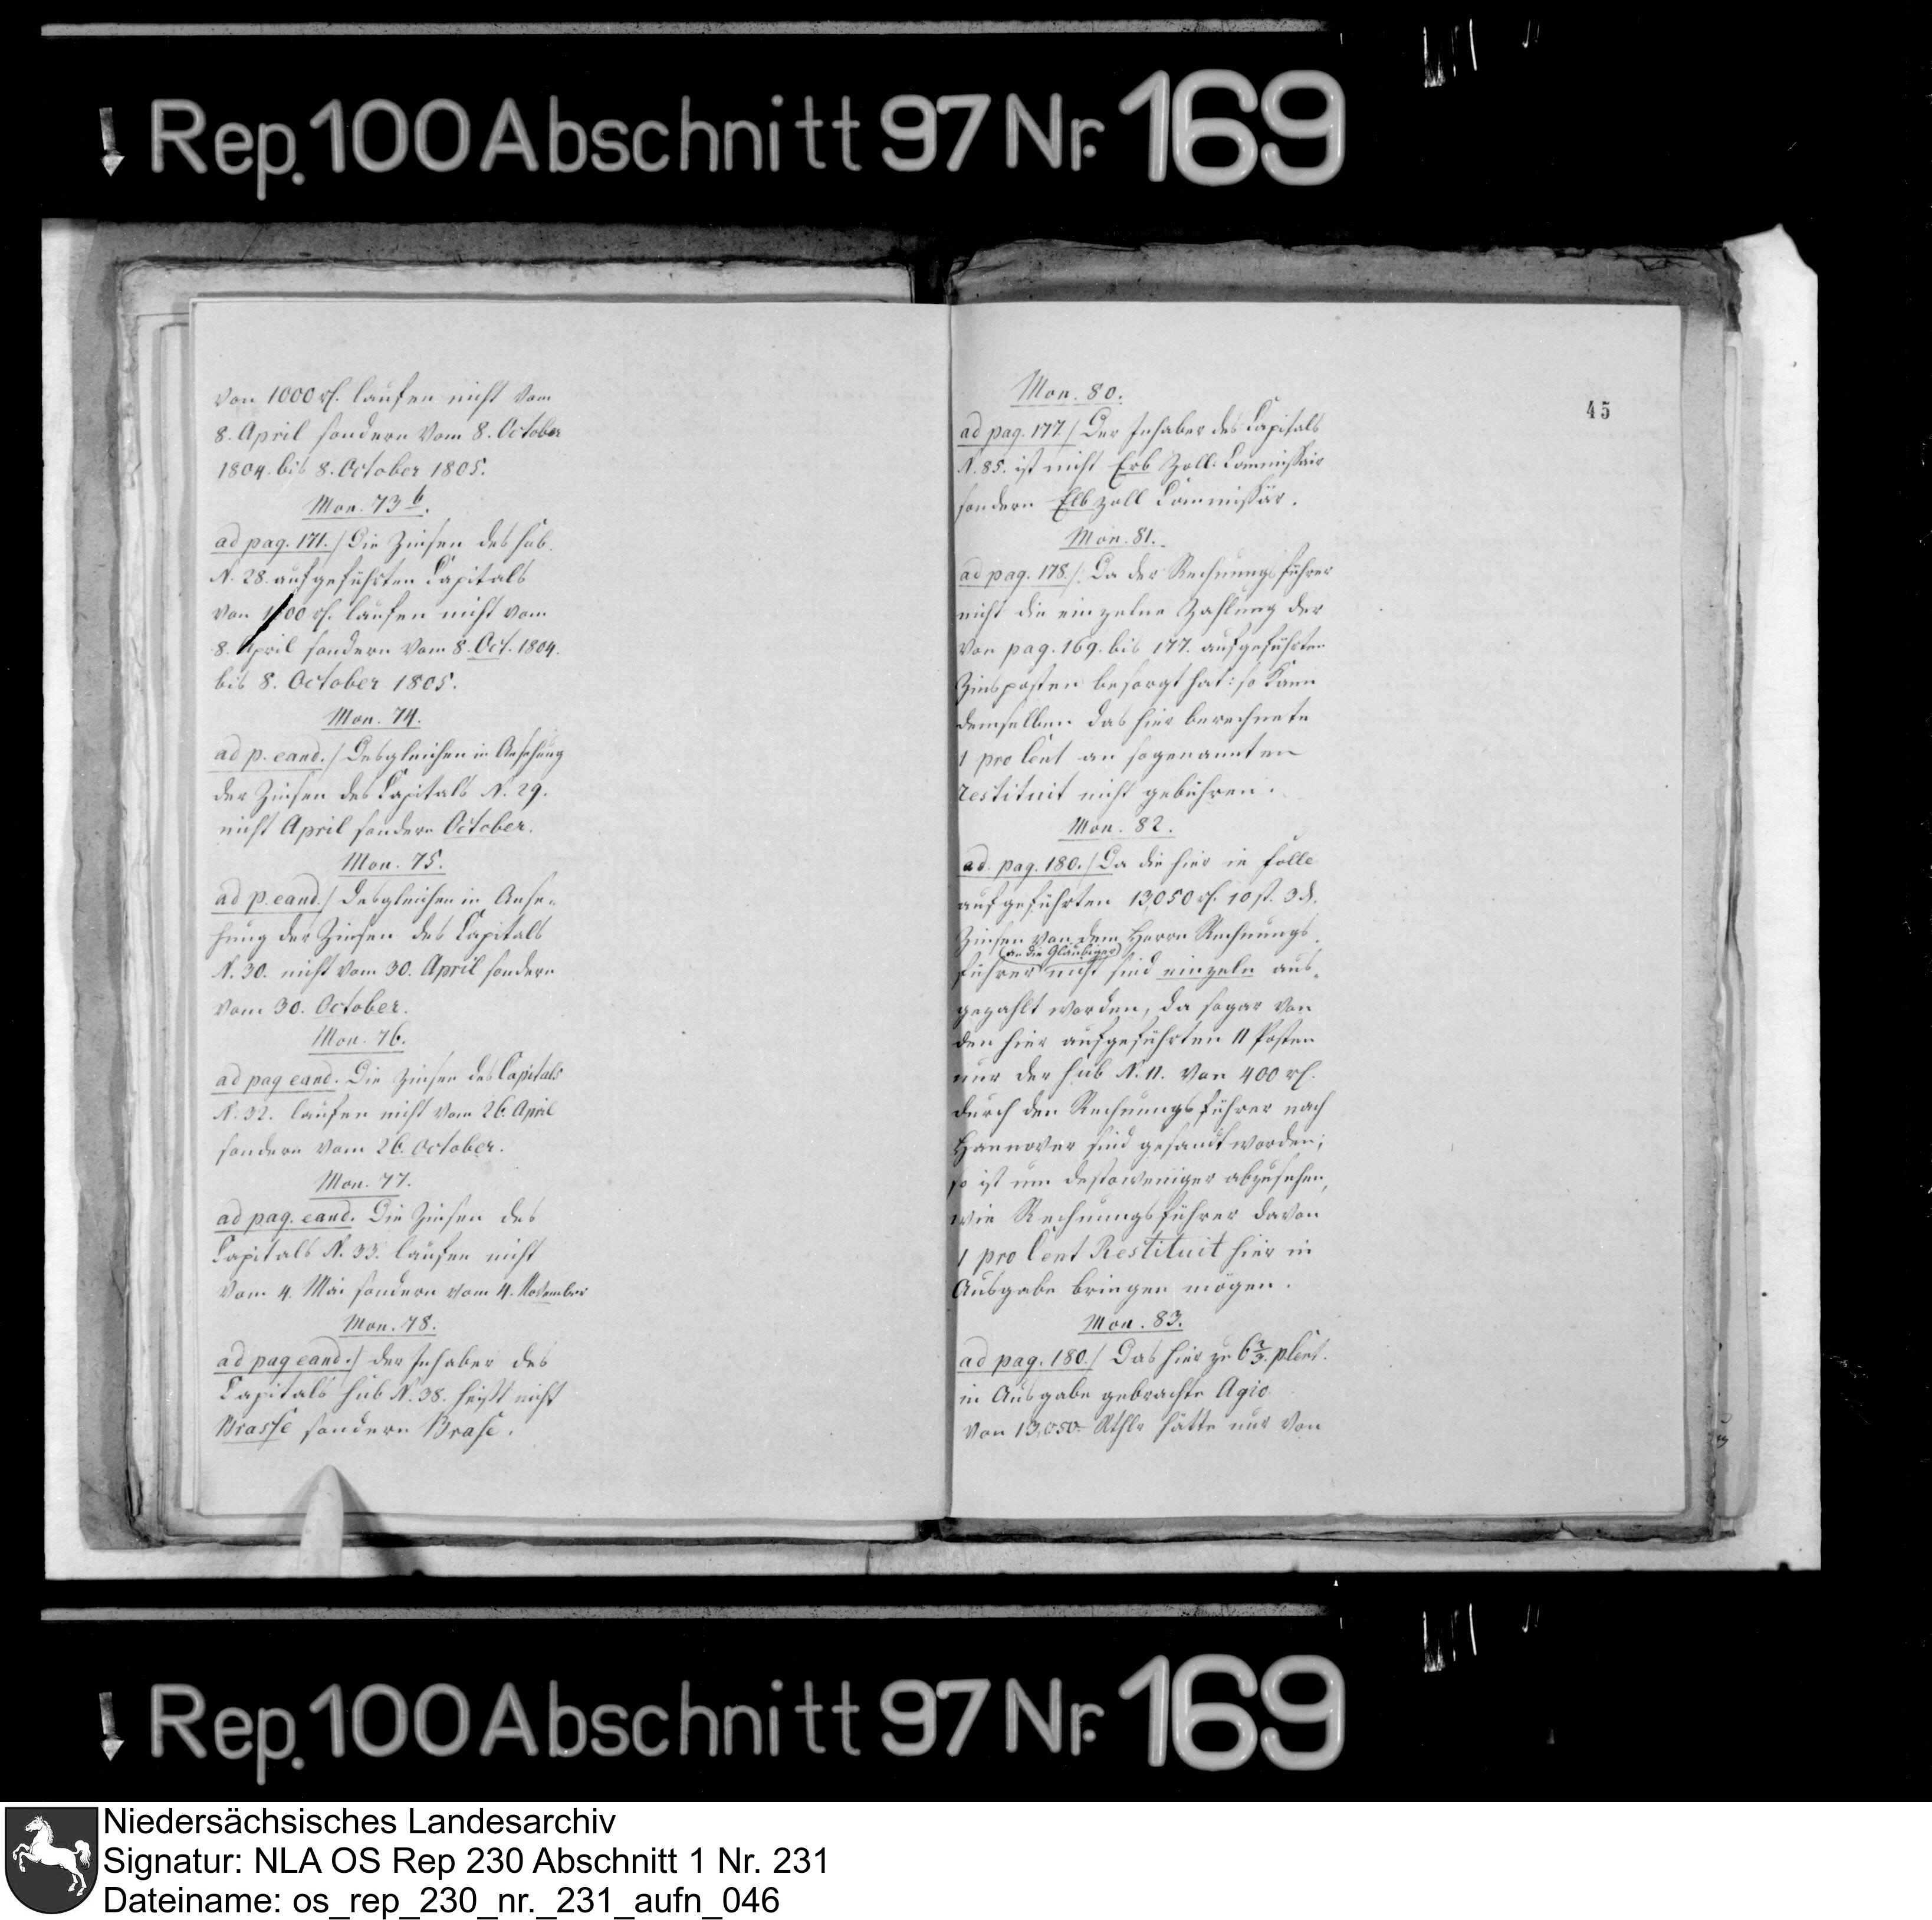 Rep. 100 Abschnitt 97 Nr. 169
von 1000 rℓ. laufen nicht vom
8. April sondern vom 8. October
1804. bis 8. October 1805.
Mon. 73 b.
ad pag. 171./ Die Zinsen des sub.
N. 28. aufgeführten Capitals
von 1000 rℓ. laufen nicht vom
8. April sondern vom 8. Oct. 1804.
bis 8. October 1805.
Mon. 74.
ad p. eand./ Desgleichen in Ansehung
der Zinsen des Capitals N. 29.
nicht April sondern October.
Mon. 75.
ad p. eand./ desgleichen in Anse-
hung der Zinsen des Capitals
N. 30. nicht vom 30. April sondern
vom 30. October.
Mon. 76.
ad pag eand. Die Zinsen des Capitals
N. 32. laufen nicht vom 26. April
sondern vom 26. October.
Mon. 77.
ad pag. eand. Die Zinsen des
Capitals N. 33. laufen nicht
vom 4. Mai sondern vom 4. November
Mon. 78.
ad pag eand./ der Inhaber des
Capitals sub N. 38. heißt nicht
Brasse sondern Brase.
45
Mon. 80.
ad pag. 177./ Der Inhaber des Capitals
N. 85. ist nicht Erb Zoll-Commissair
sondern Elbzoll Commissär.
Mon. 81.
ad pag. 178./. Da der Rechnungsführer
nicht die einzelne Zahlung der
von pag. 169. bis 177. aufgeführten
Zinsposten besorgt hat: so kann
demselben das hier berechnete
1 pro Cent an sogenannten
restituit nicht gebühren.
Mon. 82.
ad. pag. 180./ Da die hier in folle
aufgeführten 13,050 rℓ. 10 st. 3 d.
Zinsen von dem Herrn Rechnungs-
(an die Gläubiger)
führer nicht sind einzeln aus-
gezahlt worden, da sogar von
den hier aufgeführten 11 Posten
nur der sub N. 11. von 400 rℓ.
durch den Rechnungsführer nach
Hannover sind gesandt worden;
so ist um destoweniger abzusehen,
wie Rechnungsführer davon
1 pro Cent Restituit hier in
Ausgabe bringen mögen.
Mon. 83.
ad pag. 180./ Das hier zu 6 2/3. pCent.
in Ausgabe gebrachte Agio
von 13,050 Rthlr hätte nur von
Rep. 100 Abschnitt 97 Nr. 169
Niedersächsisches Landesarchiv
Signatur: NLA OS Rep 230 Abschnitt 1 Nr. 231
Dateiname: os_rep_230_nr._231_aufn_046